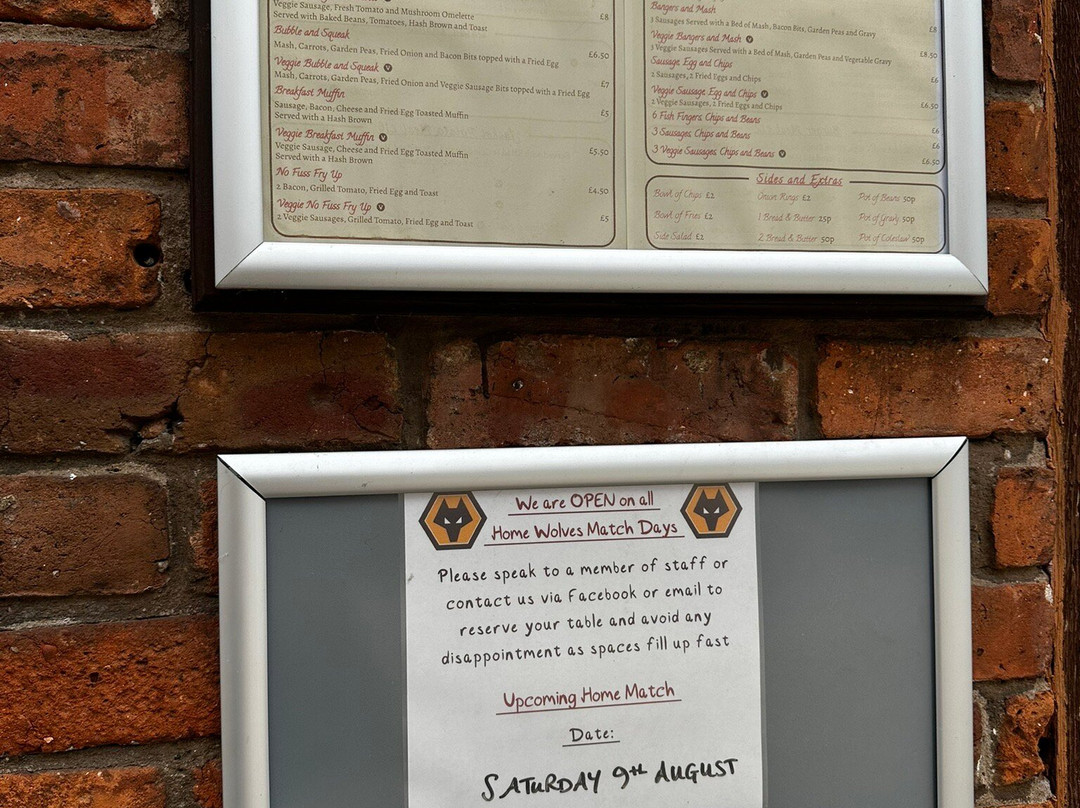 Veggie Sausage, Fresh Tomato and Mushroom Omelette £8
Served with Baked Beans, Tomatoes, Hash Brown and Toast
Bubble and Squeak
Mash, Carrots, Garden Peas, Fried Onion and Bacon Bits topped with a Fried Egg £6.50
Veggie Bubble and Squeak V
Mash, Carrots, Garden Peas, Fried Onion and Veggie Sausage Bits topped with a Fried Egg £7
Breakfast Muffin
Sausage, Bacon, Cheese and Fried Egg Toasted Muffin £5
Served with a Hash Brown
Veggie Breakfast Muffin V
Veggie Sausage, Cheese and Fried Egg Toasted Muffin £5.50
Served with a Hash Brown
No Fuss Fry Up
2 Bacon, Grilled Tomato, Fried Egg and Toast £4.50
Veggie No Fuss Fry Up V
2 Veggie Sausages, Grilled Tomato, Fried Egg and Toast £5
Bangers and Mash
3 Sausages Served with a Bed of Mash, Bacon Bits, Garden Peas and Gravy £8
Veggie Bangers and Mash V
3 Veggie Sausages Served with a Bed of Mash, Garden Peas and Vegetable Gravy £8.50
Sausage Egg and Chips
2 Sausages, 2 Fried Eggs and Chips £6
Veggie Sausage Egg and Chips V
2 Veggie Sausages, 2 Fried Eggs and Chips £6.50
6 Fish Fingers Chips and Beans £6
3 Sausages Chips and Beans £6
3 Veggie Sausages Chips and Beans V £6.50
Sides and Extras
Bowl of Chips £2 Onion Rings £2 Pot of Beans 50p
Bowl of Fries £2 1 Bread & Butter 25p Pot of Gravy 50p
Side Salad £2 2 Bread & Butter 50p Pot of Coleslaw 50p
We are OPEN on all
Home Wolves Match Days
Please speak to a member of staff or
contact us via Facebook or email to
reserve your table and avoid any
disappointment as spaces fill up fast
Upcoming Home Match
Date:
SATURDAY 9th AUGUST